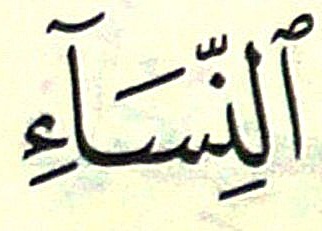 ٱلنِّسَآءِ